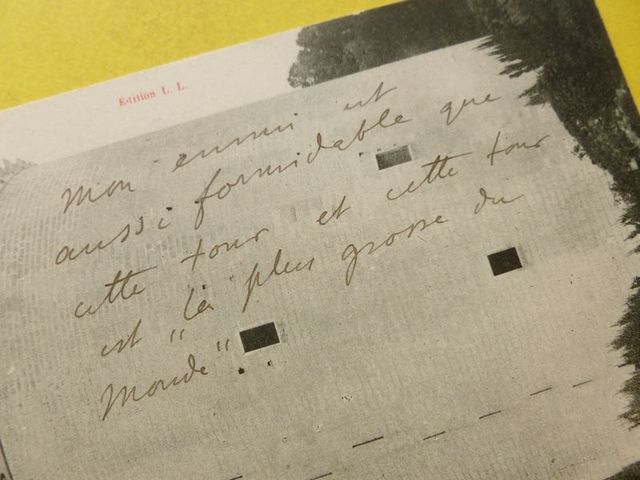 Edition L. L.
Mon ennui est
aussi formidable que
cette tour et cette tour
est "la plus grosse du
Monde"